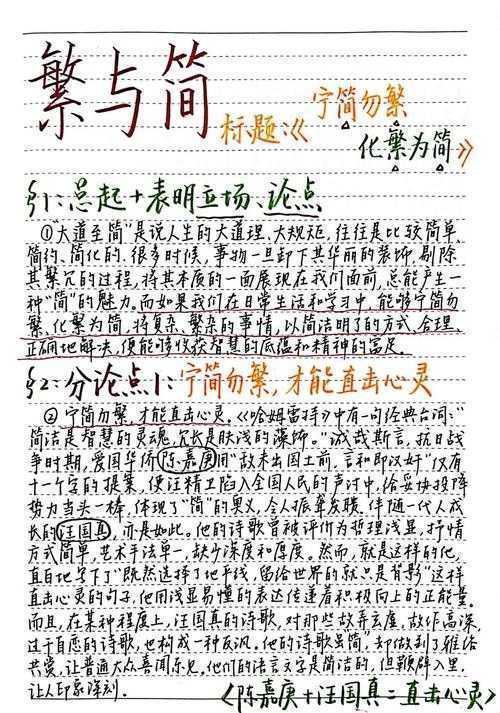 繁与简
标题:《宁简勿繁
化繁为简》
§1:总起+表明立场、论点
①"大道至简"是说人生的大道理、大规矩,往往是比较简单、
简约、简化的。很多时候,事物一旦卸下其华丽的装饰,剔除
其繁冗的过程,将其本质的一面展现在我们面前,总能产生一
种"简"的魅力。而如果我们在日常生活和学习中,能够宁简勿
繁、化繁为简,将复杂、繁杂的事情,以简洁明了的方式,合理、
正确地解决,便能够收获智慧的底蕴和精神的富足。
§2:分论点1:宁简勿繁,才能直击心灵
②宁简勿繁,才能直击心灵。《哈姆雷特》中有一句经典台词:"
简洁是智慧的灵魂,冗长是肤浅的藻饰。"诚哉斯言,抗日战
争时期,爱国华侨陈嘉庚用"敌未出国土前,言和即汉奸"仅有
十一个字的提案,便汪精卫陷入全国人民的声讨中,给妥协投降
势力当头一棒,体现了"简"的奥义,令人振聋发聩。伴随一代人成
长的汪国真,亦是如此。他的诗歌曾被评价为哲理浅显,抒情
方式简单,艺术手法单一,缺少深度和厚度。然而,就是这样的他,
直白地写下了"既然选择了地平线,留给世界的就只是背影"这样
直击心灵的句子,他用浅显易懂的表达传递着积极向上的正能量。
而且,在某种程度上,汪国真的诗歌,对那些故弄玄虚、故作高深、
过于自恋的诗歌,也构成一种反讽。他的诗歌虽"简",却做到了雅俗
共赏,让普通大众喜闻乐见。他们的语言文字是简洁的,但鞭辟入里,
让人印象深刻。
〈陈嘉庚+汪国真=直击心灵〉